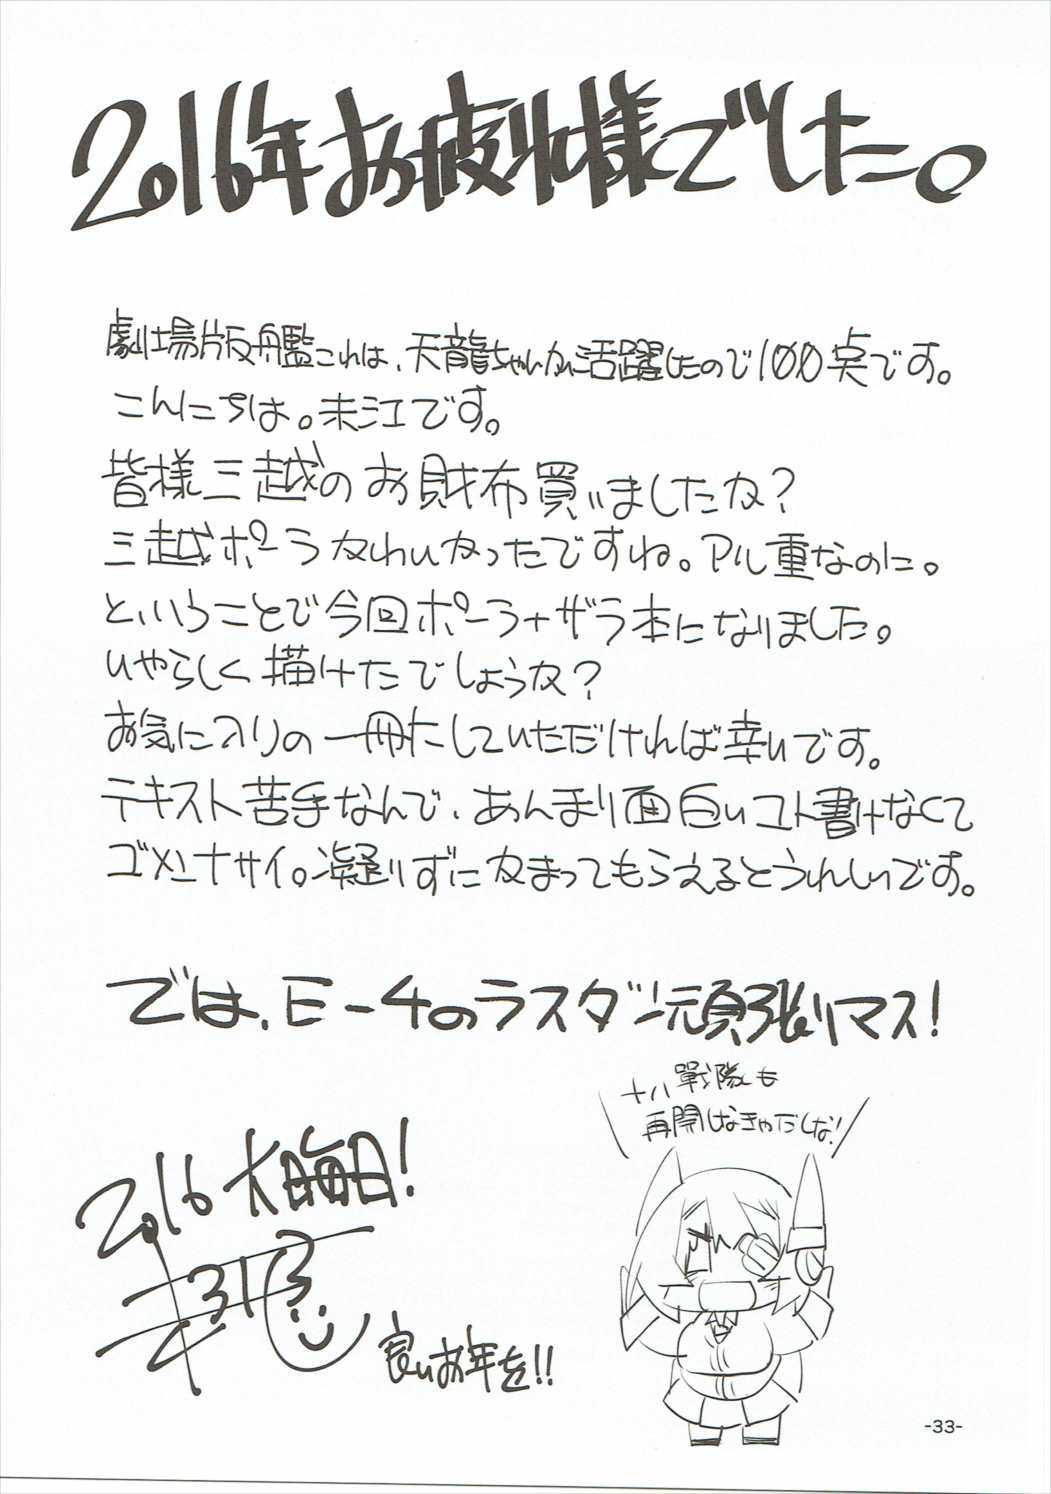 2016年お疲れ様でした。
劇場版艦これは、天龍ちゃんが活躍したので100点です。
こんにちは。未江です。
皆様三越のお財布買いましたか？
三越ポーラかわいかったですね。アル重なのに。
ということで今回ポーラ+ザラ本になりました。
いやらしく描けたでしょうか？
お気に入りの一冊にしていただければ幸いです。
テキスト苦手なんで、あんまり面白いコト書けなくて
ゴメンナサイ。凝りずにかまってもらえるとうれしいです。
では、E-4のラスダン頑張りマス！
十八戦隊も
再開しなきゃだしな！
2016 大晦日！
良いお年を!!
-33-